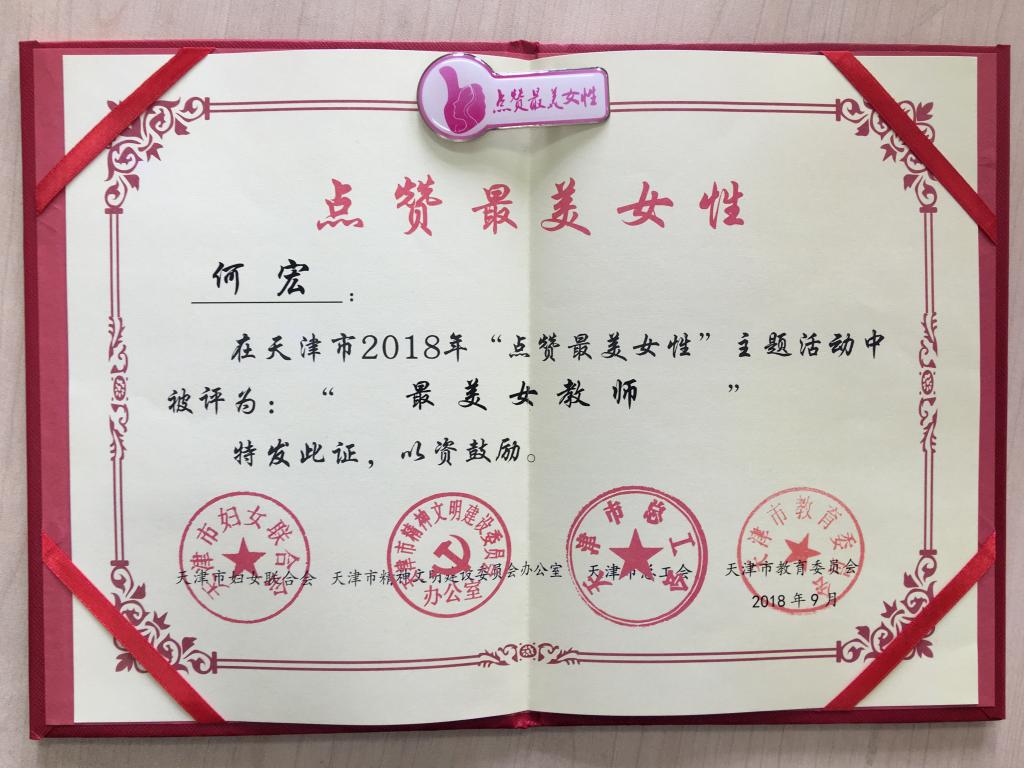 点赞最美女性
点赞最美女性
何宏：
在天津市2018年“点赞最美女性”主题活动中
被评为：“ 最美女教师 ”
特发此证，以资鼓励。
天津市妇女联合会
天津市精神文明建设委员会
办公室
天津市总工会
天津市教育委员会
天津市妇女联合会 天津市精神文明建设委员会办公室 天津市总工会 天津市教育委员会
2018年9月